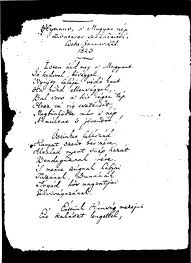 Hymnus, a' Magyar nép
zivataros századaiból.
Cseke, Január
1823
Isten áldd meg a' Magyart
Jó kedvvel, bőséggel,
Nyújts feléje védő kart
Ha küzd ellenséggel;
Bal sors a' kit régen tép
Hozz rá víg esztendőt,
Megbűnhődte már e' nép
A' multat 's jövendőt.
Őseinket felhozád
Kárpát szent bérczére,
Általad nyert szép hazát
Bendegúznak vére.
'S merre zúgnak habjai
Tiszának, Dunának
Árpád hős magzatjai
Felvirágozának.
Értünk Kúnság mezejin
Ért kalászt lengettél,